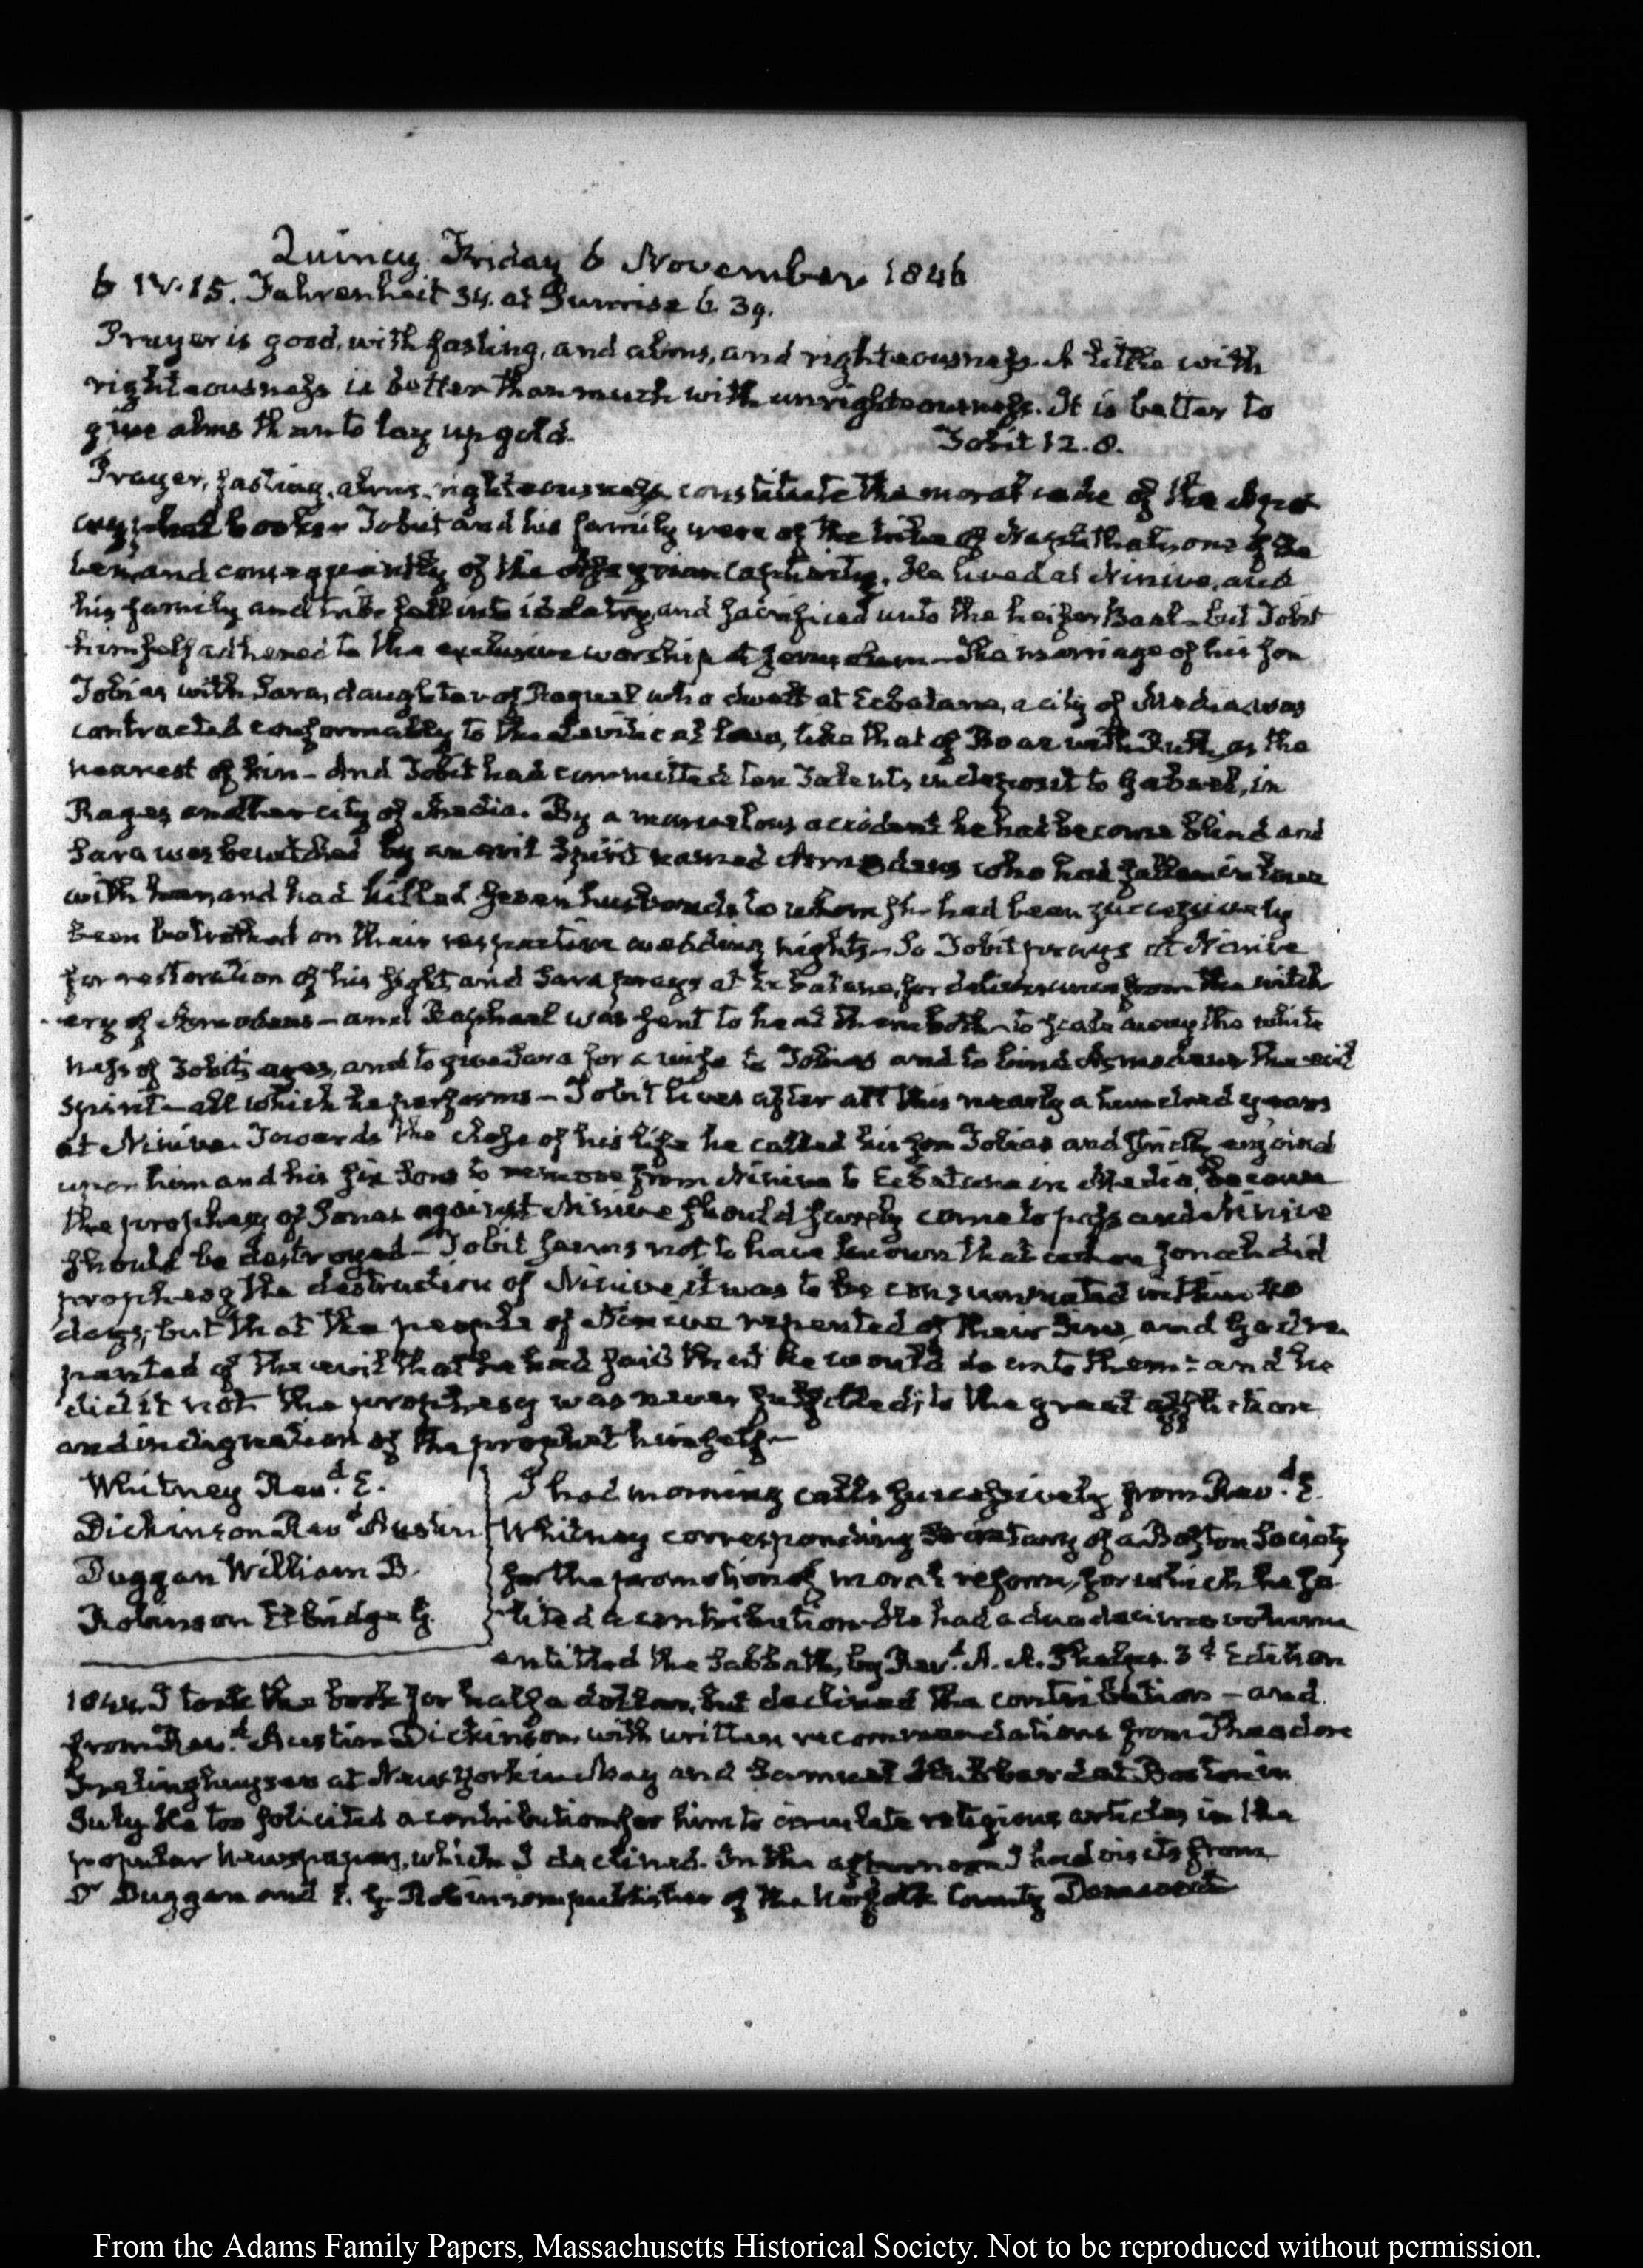 Quincy Friday 6 November 1846
6 IV.15. Fahrenheit 34. at Sunrise 6 39.
Prayer is good, with fasting, and alms, and righteousness. A little with
righteousness is better than much with unrighteousness. It is better to
give alms than to lay up gold. Tobit 12.8.
Prayer, fasting, alms, righteousness, constitute the moral code of the Apo-
cryphal books. Tobit and his family were of the tribe of Naphthali, one of the
ten, and consequently of the Assyrian captivity. He lived at Ninive, and
his family and tribe fell into idolatry, and sacrificed unto the heifer Baal – but Tobit
himself adhered to the exclusive worship at Jerusalem – The marriage of his son
Tobias with Sara, daughter of Raguel who dwelt at Ecbatane, a city of Media, was
contracted conformably to the Levitical law, like that of Boaz with Ruth, as the
nearest of kin – And Tobit had committed ten Talents in deposit to Gabael, in
Rages another city of Media. By a marvellous accident he had become blind and
Sara was bewitched by an evil Spirit named Asmodeus who had fallen in love
with her, and had killed seven husbands to whom she had been successively
been betrothed on their respective wedding nights – So Tobit prays at Ninive
for restoration of his sight, and Sara prays at Ecbatane, for deliverance from the witch
ery of Asmodeus – and Raphael was sent to heal them both – to scale away the white
ness of Tobit's eyes, and to give Sara for a wife to Tobias and to bind Asmodeus the evil
spirit – all which he performs – Tobit lives after all this nearly a hundred years
at Ninive. Towards the close of his life he called his son Tobias and strictly enjoind
upon him and his six sons to remove from Ninive to Ecbatane in Media, because
the prophesy of Jonas against Ninive should surely come to pass and Ninive
should be destroyed – Tobit seems not to have known that when Jonah did
prophesy the destruction of Ninive, it was to be consummated within 40
days; but that the people of Ninive repented of their Sins, and God re-
pented of the evil that he had said that he would do unto them: and he
did it not. The prophesy was never fulfilled; to the great affliction
and indignation of the prophet himself –
Whitney Revd. E.
Dickinson Revd Austin
Duggan William B.
Robinson Elbridge G.
I had morning calls successively from Revd. E.
Whitney corresponding Secretary of a Boston Society
for the promotion of moral reform, for which he so-
lited a contribution – He had a duodecimo volume
entitled the Sabbath, by Revd. A. A. Phelps. 3d Edition
1844. I took the book for half a dollar, but declined the contribution – and
from Revd. Austin Dickinson, with written recommendations from Theodore
Frelinghuysen at New York in May and Samuel Hubbard at Boston in
July. He too solicited a contribution for him to circulate religious articles in the
popular Newspapers, which I declined. In the afternoon I had visits from
Dr Duggan and E. G. Robinson publisher of the Norfolk County Democrat
From the Adams Family Papers, Massachusetts Historical Society. Not to be reproduced without permission.